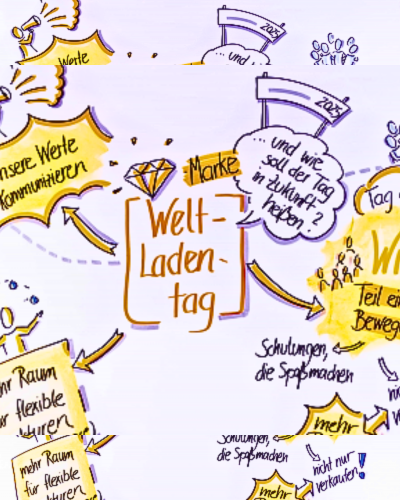 Werte
...und
2025
unsere Werte
Kommunizieren
Marke
2025
...und wie
soll der Tag
in Zukunft
heißen?
Welt-
Laden-
tag
Tag
Teil
Bewe
Schulungen,
die Spaß machen
mehr
Raum
flexible
mehr Raum
für flexible
die Spaß machen
mehr
nicht nur
verkaufen!